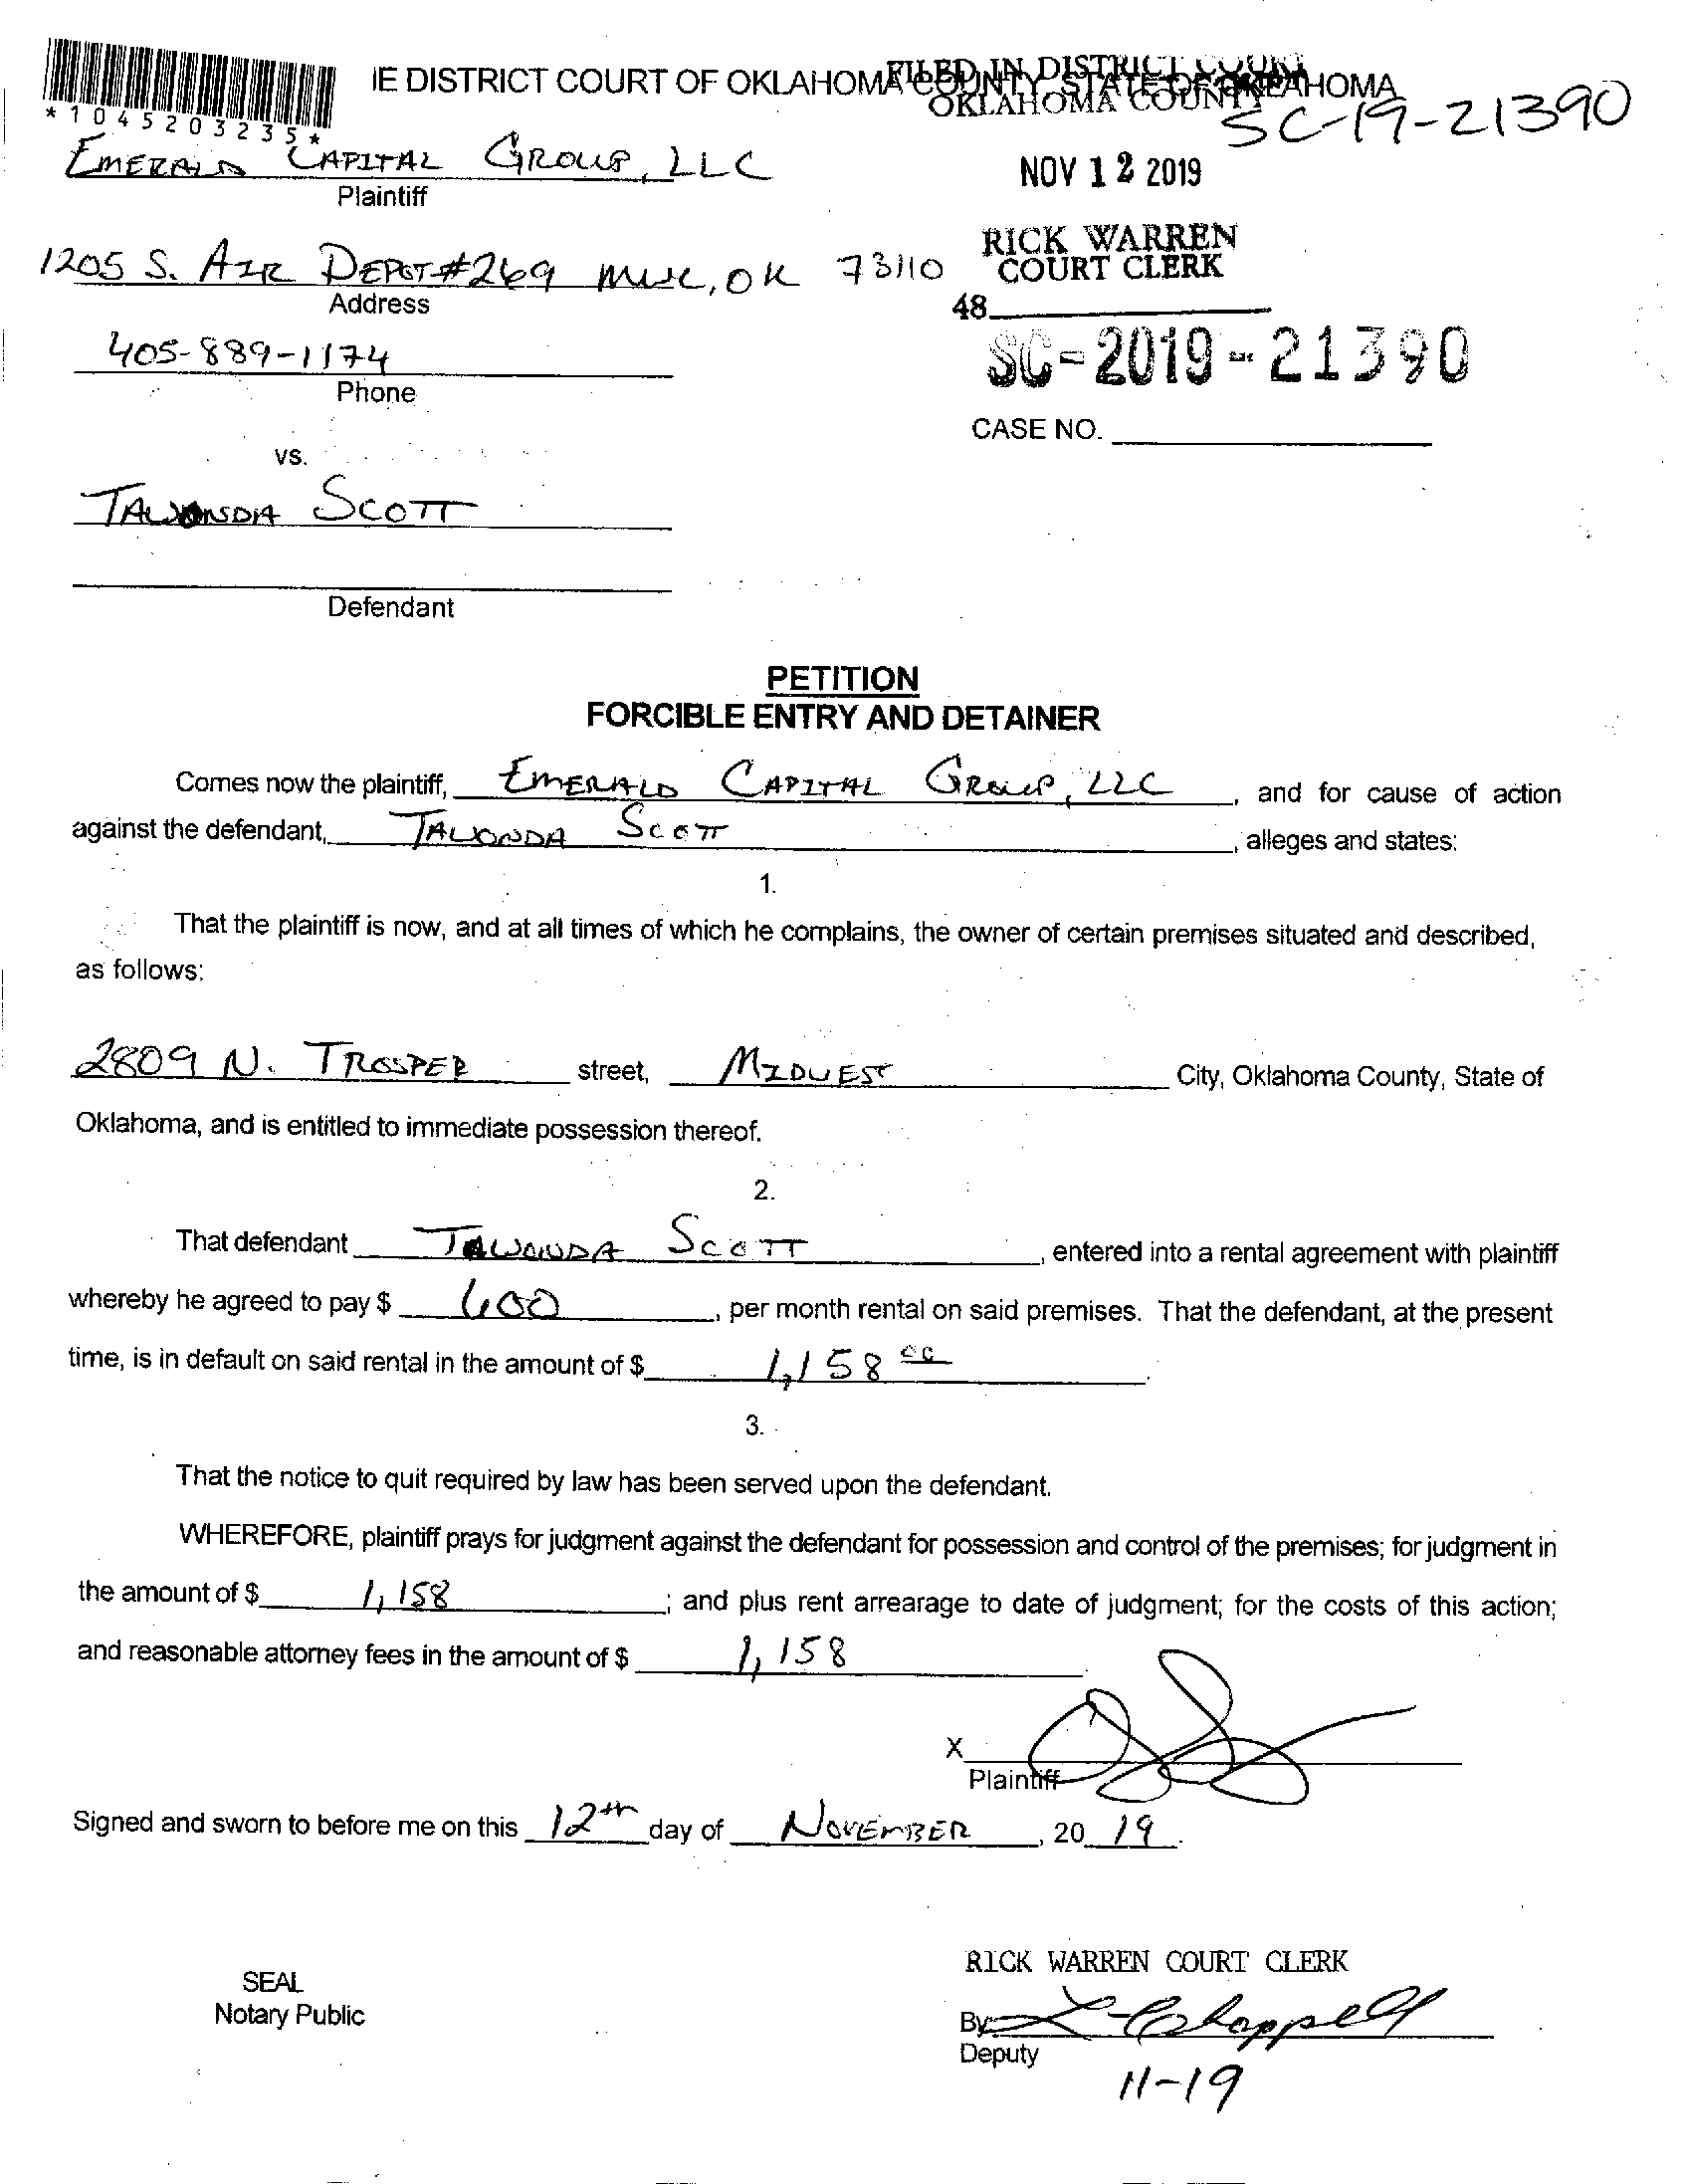 IE DISTRICT COURT OF OKLAHOMA COUNTY STATE OF OKLAHOMA
FILED IN DISTRICT COURT
OKLAHOMA COUNTY
SC-19-21390
*1045203235*
EMERALD CAPITAL GROUP, LLC
Plaintiff
NOV 12 2019
RICK WARREN
COURT CLERK
1205 S. AIR DEPOT #269 MWC, OK 73110
Address
48
405-889-1174
Phone
SC-2019-21390
CASE NO.
vs.
TAWONDA SCOTT
Defendant
PETITION
FORCIBLE ENTRY AND DETAINER
Comes now the plaintiff, EMERALD CAPITAL GROUP, LLC, and for cause of action
against the defendant, TAWONDA SCOTT, alleges and states:
1.
That the plaintiff is now, and at all times of which he complains, the owner of certain premises situated and described,
as follows:
2809 N. TROSPER street, MIDWEST City, Oklahoma County, State of
Oklahoma, and is entitled to immediate possession thereof.
2.
That defendant TAWONDA SCOTT, entered into a rental agreement with plaintiff
whereby he agreed to pay $ 600, per month rental on said premises. That the defendant, at the present
time, is in default on said rental in the amount of $ 1,158 00.
3.
That the notice to quit required by law has been served upon the defendant.
WHEREFORE, plaintiff prays for judgment against the defendant for possession and control of the premises; for judgment in
the amount of $ 1,158; and plus rent arrearage to date of judgment; for the costs of this action;
and reasonable attorney fees in the amount of $ 1,158
X
Plaintiff
Signed and sworn to before me on this 12th day of NOVEMBER, 20 19.
RICK WARREN COURT CLERK
SEAL
Notary Public
By L Chappell
Deputy
11-19